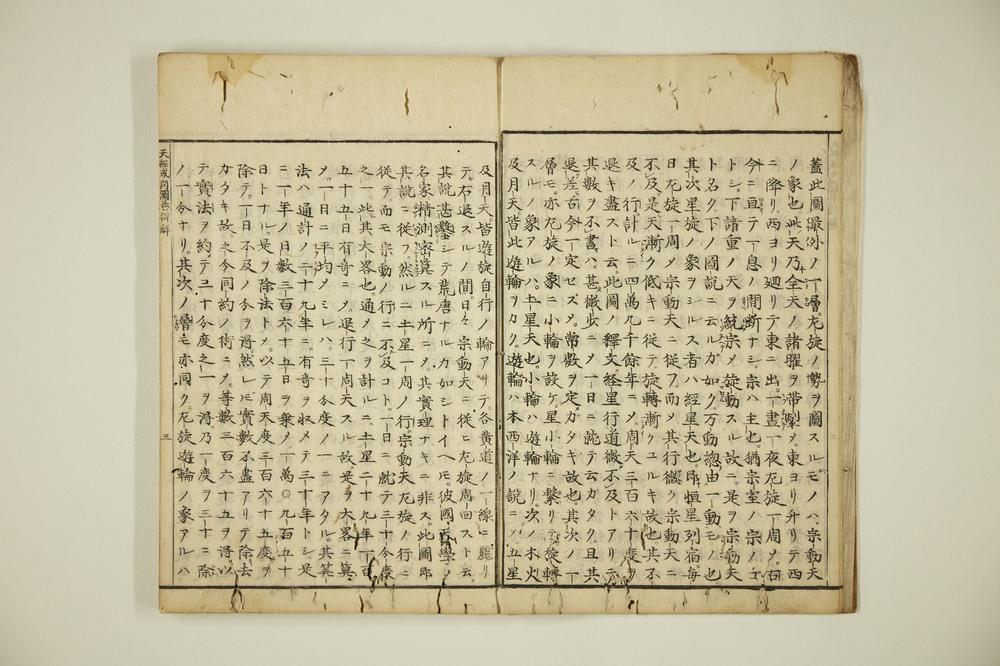 蓋此圖最外ノ一層左旋ノ勢ヲ圖スルモノハ宗動天
ノ象也此天乃全天ノ諸曜ヲ帶掣メ東ヨリ升リテ西
ニ降リ西ヨリ廻リテ東ニ出一晝一夜左旋一周メ古
今ニ亘テ一息ノ間斷ナシ宗ハ主也猶宗室ノ宗ノ
トシ下諸重ノ天ヲ統宗メ旋動スル故ニ是ヲ宗動天
ト名ク下ノ圖說ニ云ルガ如ク万動總由一動モノ也
其次ニ星旋ノ象ヲシルス者ハ經星天也即恒星列宿每
日左旋一周メ宗動天ニ從フ而メ其行微ク宗動天ニ
不及是天漸ク低キニ從テ旋轉漸クユルキ故也其不
及ノ行計ルニ四萬九千餘年ニメ周天三百六十度ヲ
退キ盡スト云此圖ノ釋文經星行道微不及トアリテ
其數ヲ不書ハ甚微步ニメ一日ニ就テ云ガタク且其
退差古今一定セズメ常數ヲ定ガタキ故也其次ノ一
層モ亦左旋ノ象圖ニ小輪ヲ設ケ星小輪ニ繫リテ旋轉
スルノ象アルハ土星天也小輪ハ遊輪ナリ次ノ木火
及月天皆此遊輪ヲカク遊輪ハ本西洋ノ說ニメ五星
及月天皆遊旋自行ノ輪アツテ各黃道ノ一線ニ麗リ
テ右退スルノ間日々宗動天ニ從ヒ左旋周回スト云
其說甚鑿シテ荒唐ナルカ如シトイヘモ彼國
名家精測密算スル所ニメ其實理ナキニ非ス此圖即
其說ニ從フ然ルニ土星一周ノ行宗動天左旋ノ行ニ
從テ而モ宗動ノ行ニ不及コト一日ニ就テ三十分度
之一此其大畧也通メ之ヲ計ルニ土星二十九年一百
五十五日有奇ニメ退行一周天スル故是ヲ大畧ニ算
メ一日ニ平均メシレハ三十分度ノ一ニアタル其算
法ハ通計ノ二十九年ニ有奇ヲ收メテ三十年トシ是
ニ一年ノ日數三百六十五日ヲ乘メ一萬〇九百五十
日トナル是ヲ除法トメ以テ周天度三百六十五度ヲ
除テ一日不及ノ分ヲ得然レモ實數不盡アリテ除去
カタキ故之ヲ同約ノ術ニメ等數三百六十五ヲ得以
テ實法ヲ約テ三十分度之一ヲ得乃一度ヲ三十ニ除
ノ一分ナリ其次ノ層モ亦同ク左旋遊輪ノ象アルハ
三